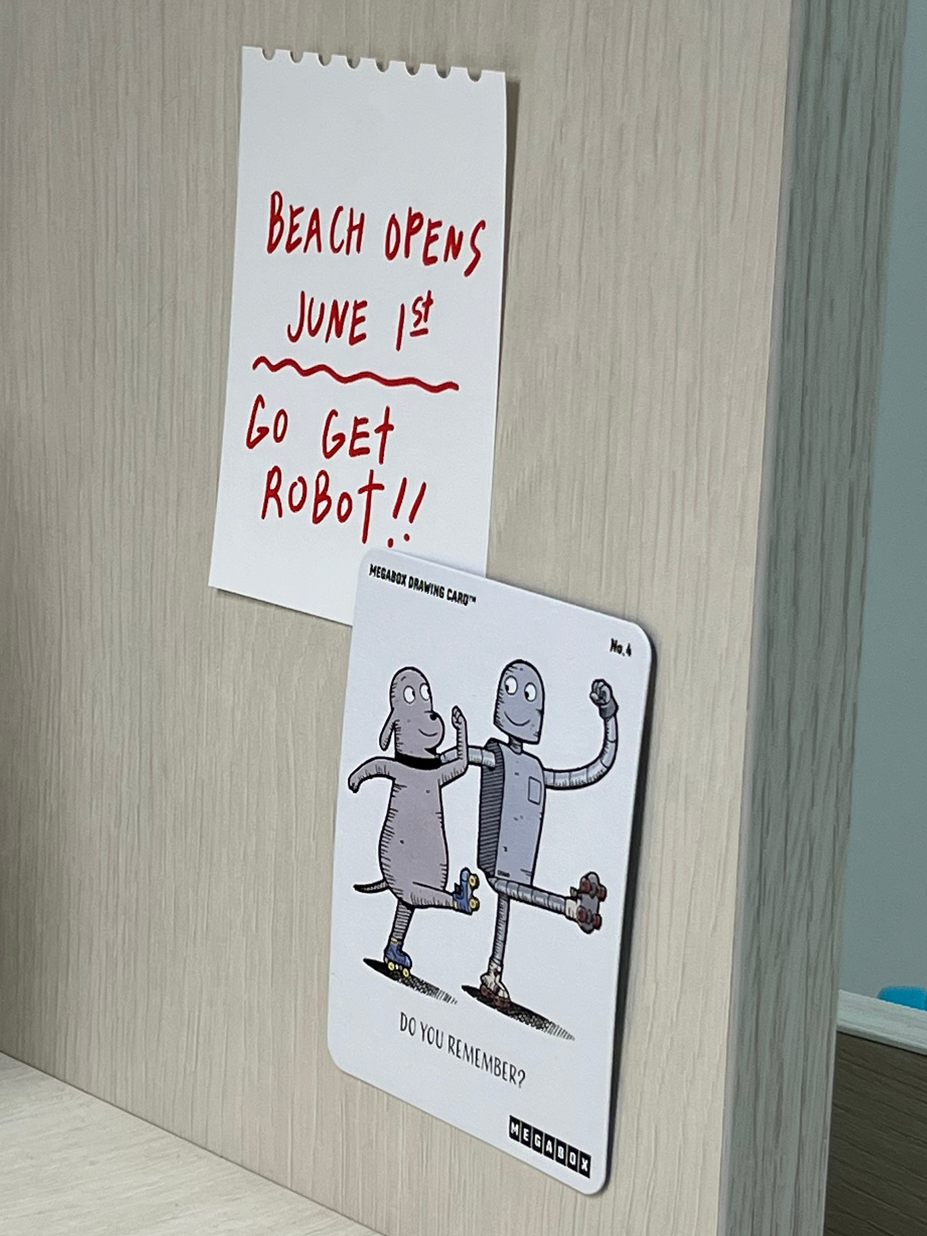 BEACH OPENS
JUNE 1st
GO GET
ROBOT!!
MEGABOX DRAWING CARD™
No.4
DO YOU REMEMBER?
MEGABOX